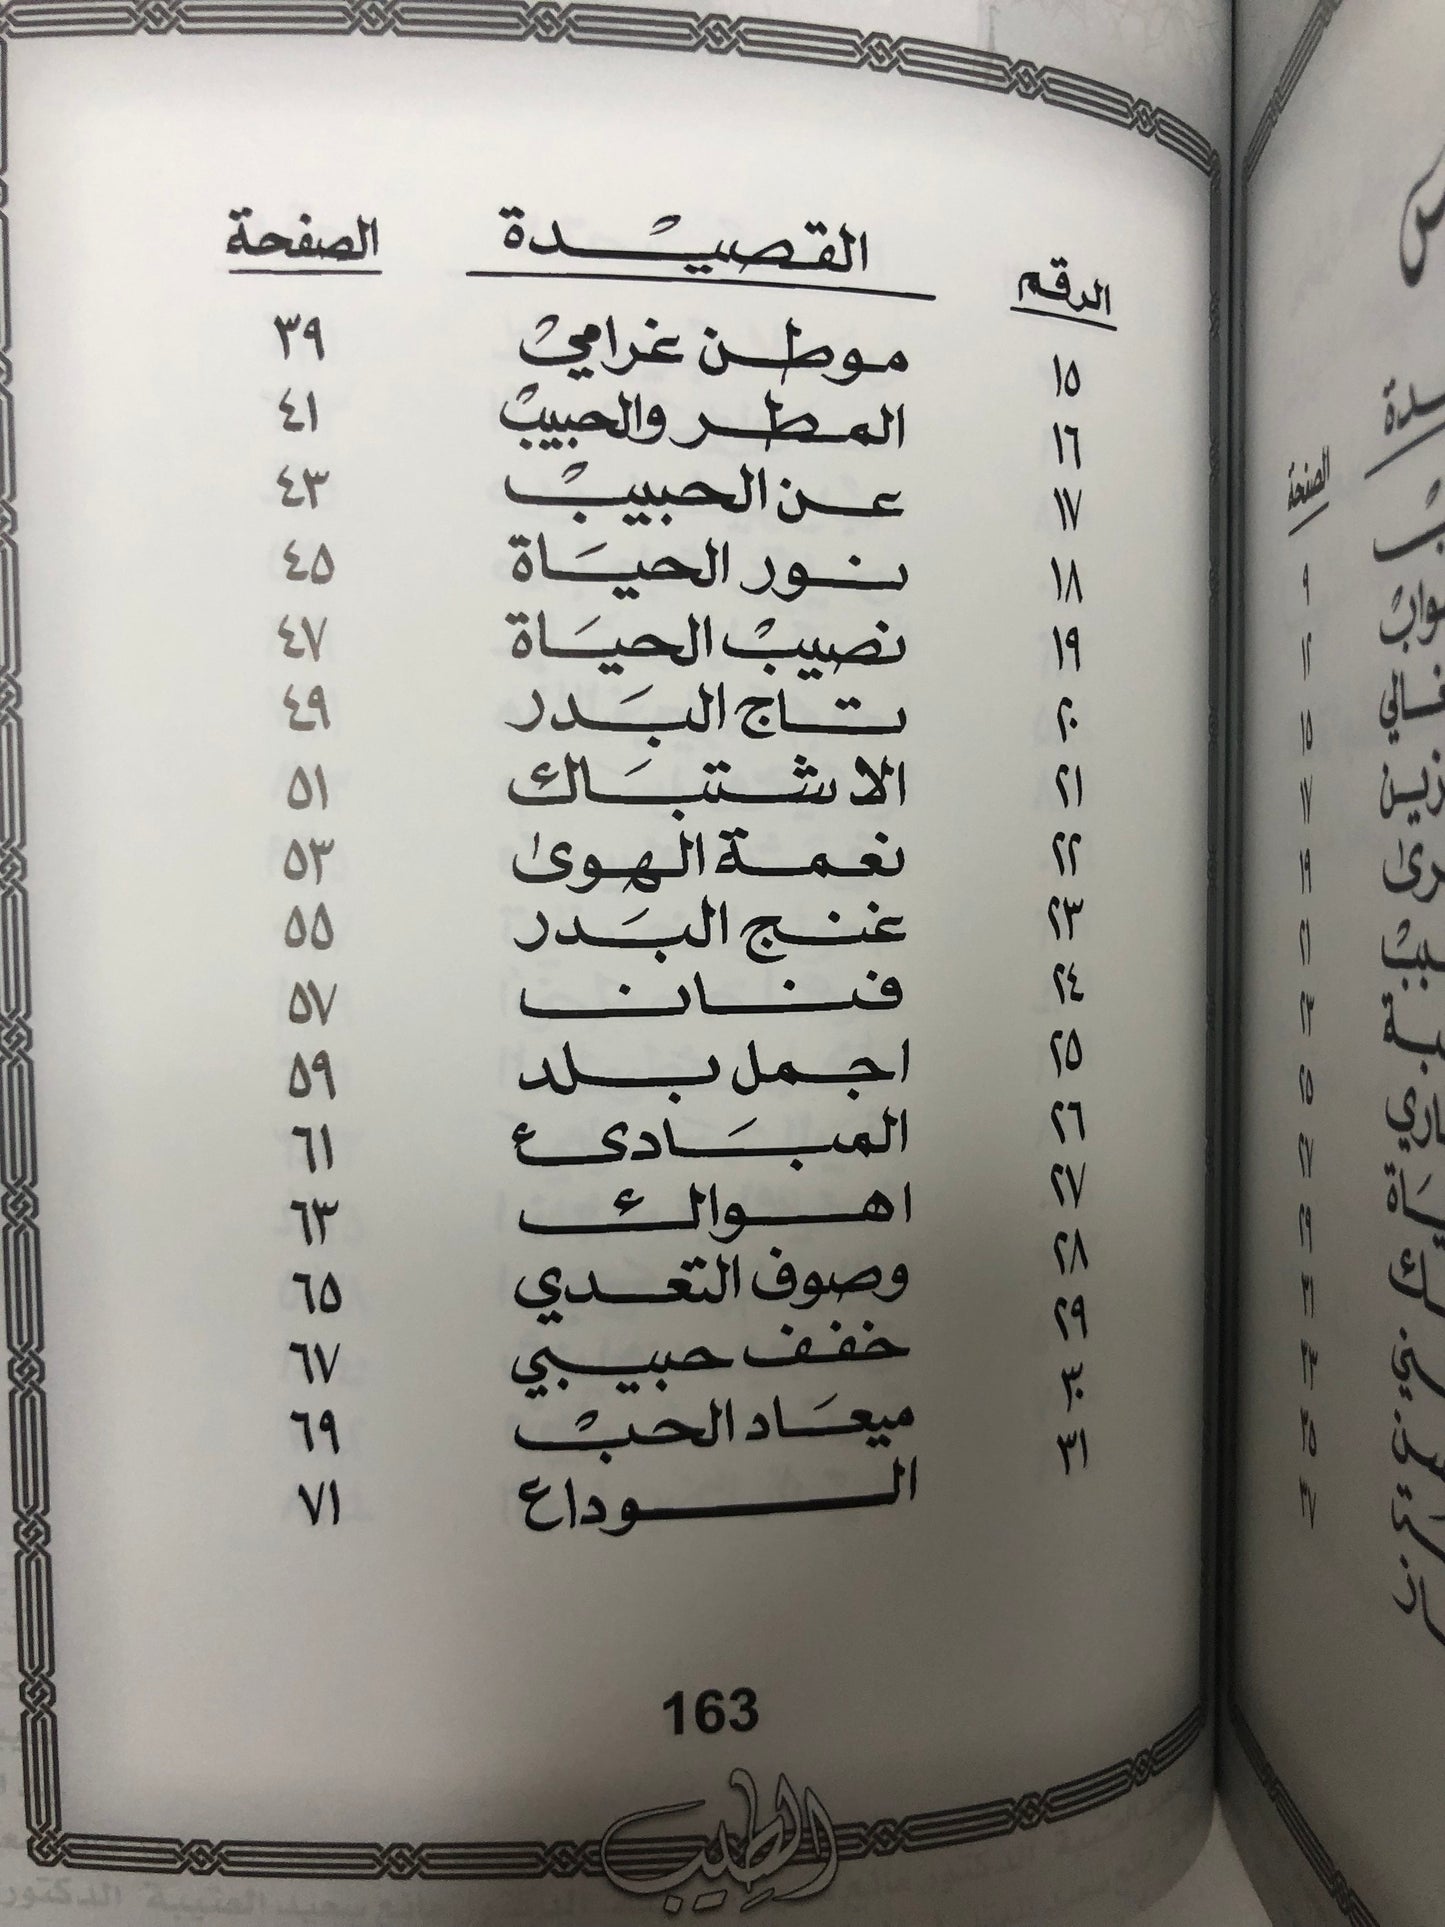 الصفحة
٩
١٥
١٧
١٩
٢١
٢٣
٢٥
٢٧
٢٩
٣١
٣٣
٣٥
٣٧
الرقم القصيدة الصفحة
١٥ موطن غرامي ٣٩
١٦ المطر والحبيب ٤١
١٧ عن الحبيب ٤٣
١٨ نور الحياة ٤٥
١٩ نصيب الحياة ٤٧
٢٠ تاج البدر ٤٩
٢١ الاشتباك ٥١
٢٢ نعمة الهوى ٥٣
٢٣ غنج البدر ٥٥
٢٤ فنان ٥٧
٢٥ اجمل بلد ٥٩
٢٦ المبادئ ٦١
٢٧ اهواك ٦٣
٢٨ وصوف التعدي ٦٥
٢٩ خفف حبيبي ٦٧
٣٠ ميعاد الحب ٦٩
٣١ الوداع ٧١
163
الطيب